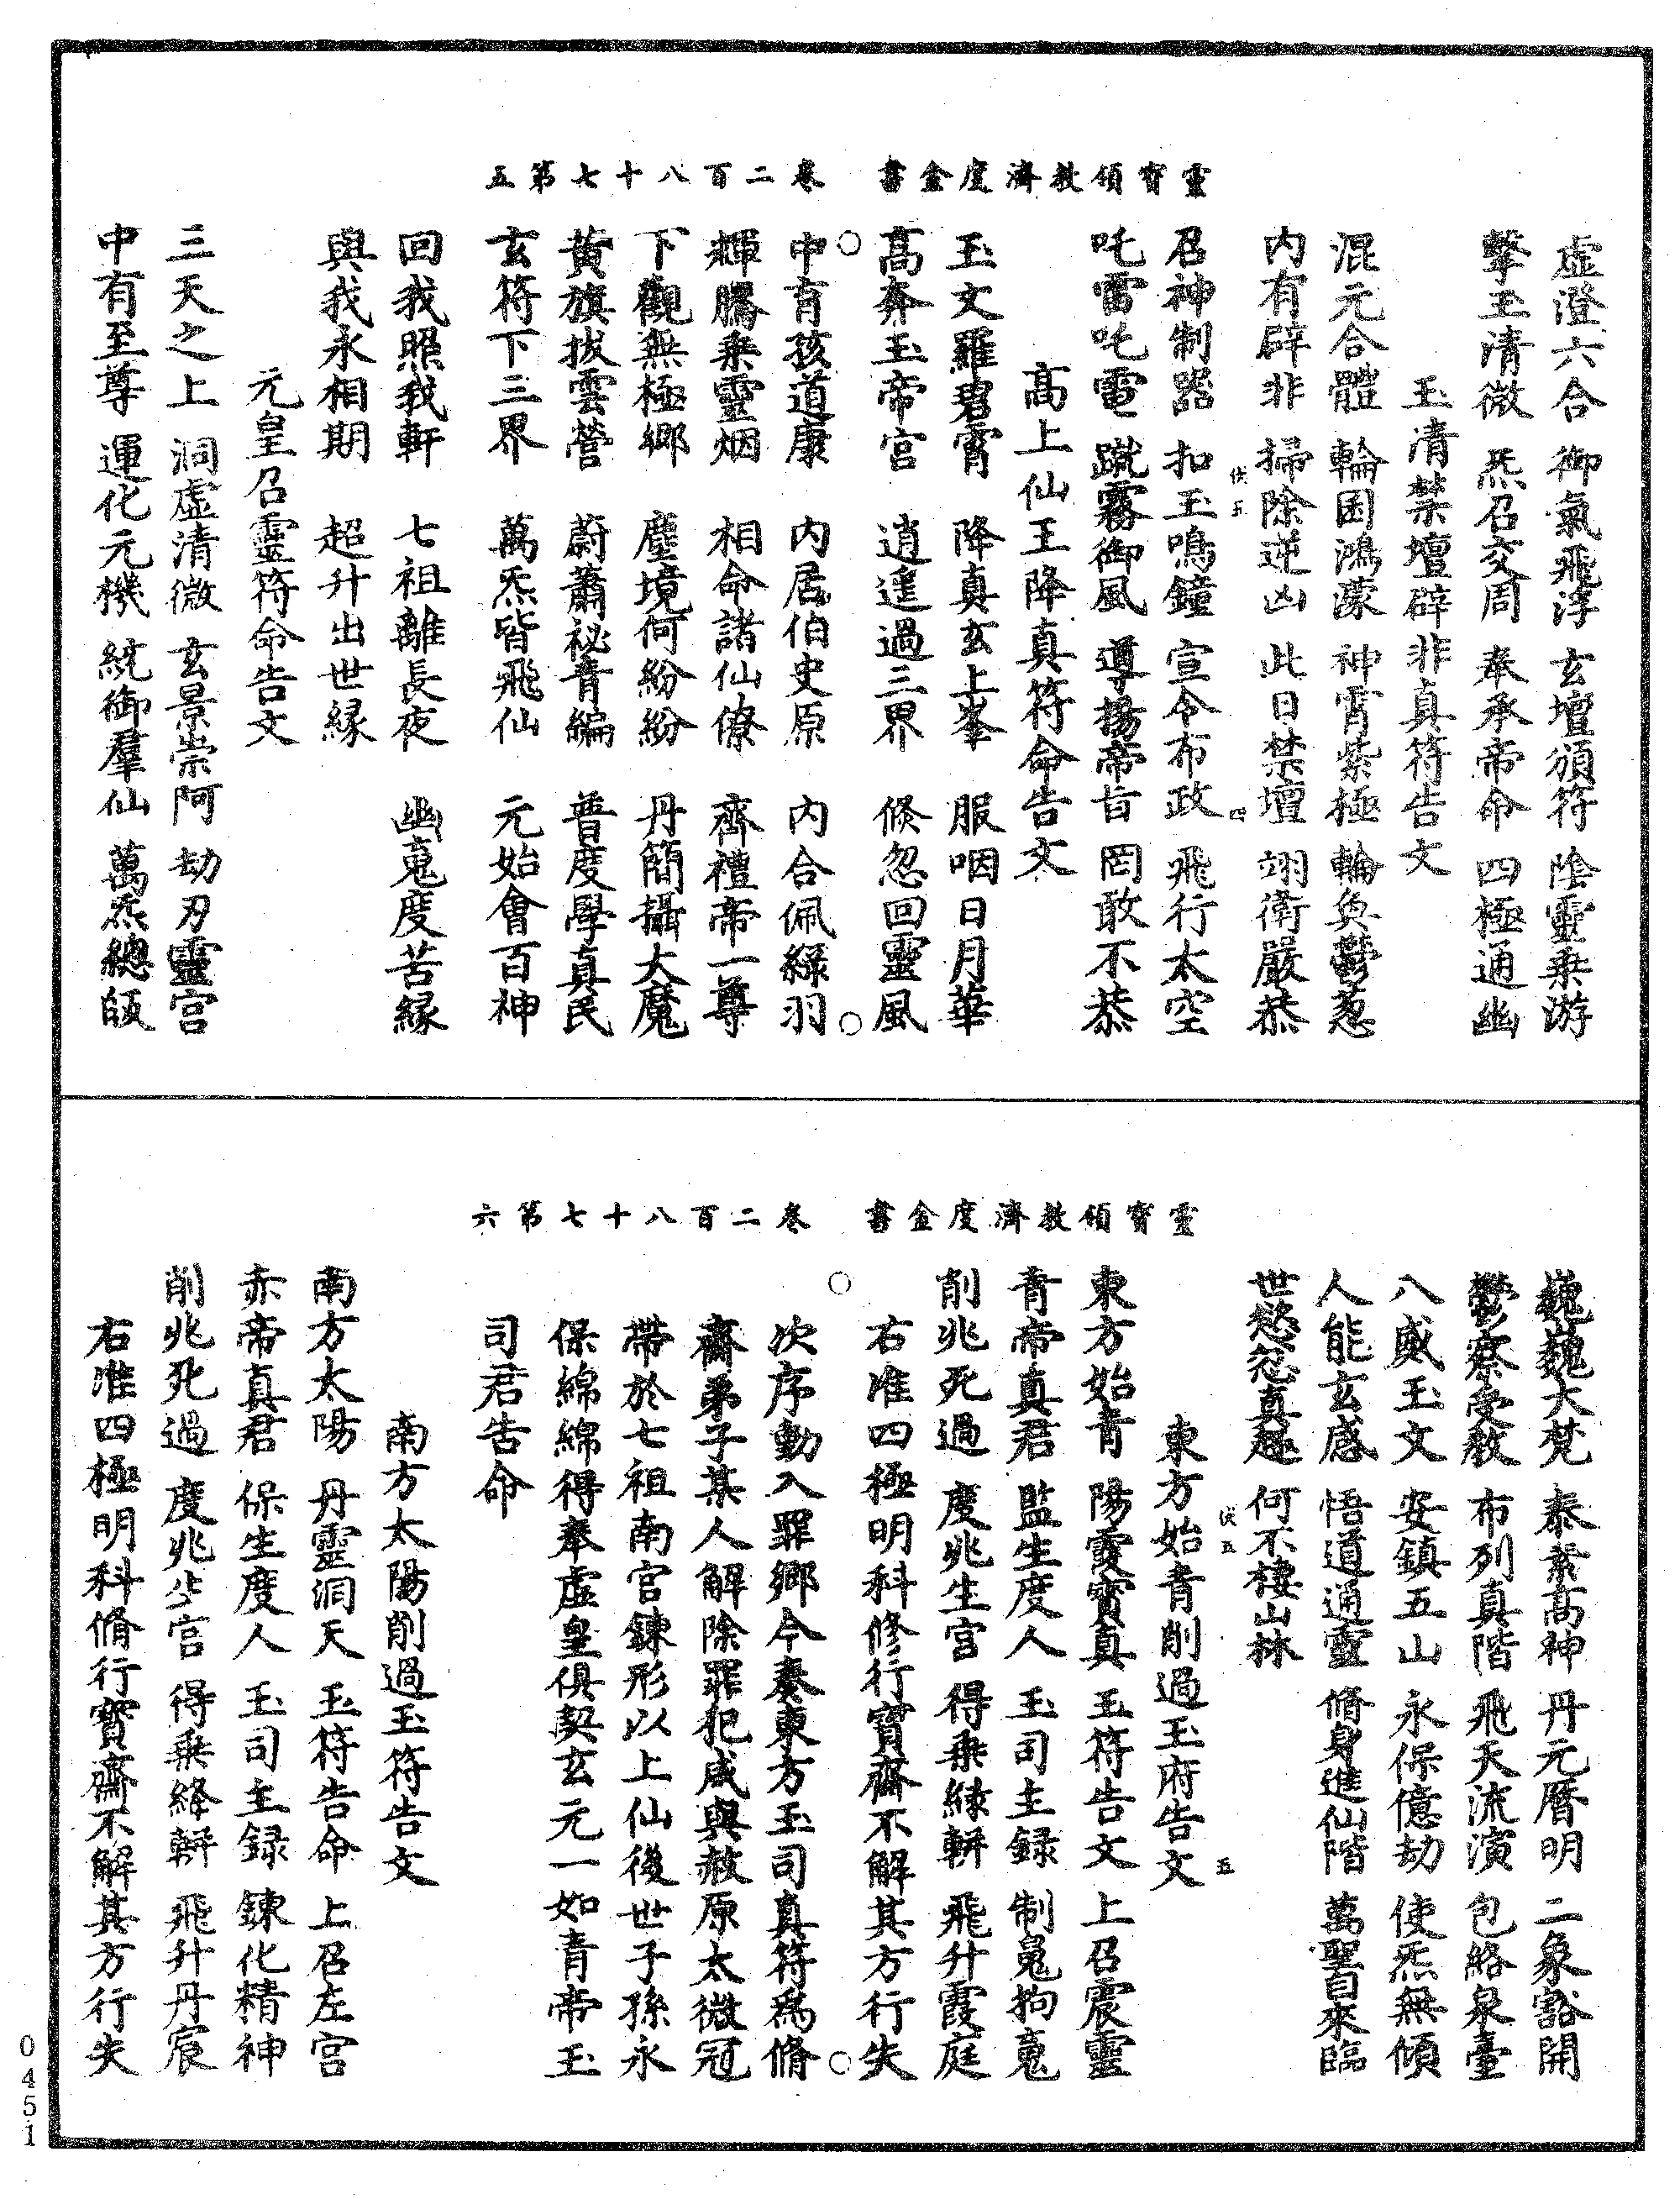 靈寶領教濟度金書　卷二百八十七第五
虛澄六合　御氣飛浮　玄壇頒符　陰靈乗游
擊玉清微　炁召交周　奉承帝命　四極通幽
玉清禁壇辟非真符告文
混元合體　輪囷鴻濛　神霄紫極　輪奐鬱葱
内有辟非　掃除逆凶　此日禁壇　翊衛嚴恭
召神制器　扣玉鳴鐘　宣令布政　飛行太空
吒雷吒電　蹴霧御風　導揚帝旨　罔敢不恭
高上仙王降真符命告文
玉文羅碧霄　降真玄上峯　服咽日月華
高奔玉帝宫　逍遥過三界　倐忽回靈風
中有孩道康　内居伯史原　内合佩緑羽
輝騰乗靈烟　相命諸仙僚　齊禮帝一尊
下觀無極鄉　塵境何紛紛　丹簡攝大魔
黄旗拔雲營　蔚蕭祕青編　普度學真民
玄符下三界　萬炁皆飛仙　元始會百神
回我照我軒　七祖離長夜　幽䰟度苦縁
與我永相期　超升出世縁
元皇召靈符命告文
三天之上　洞虚清微　玄景崇阿　劫刃靈宫
中有至尊　運化元機　統御羣仙　萬炁總皈
靈寶領教濟度金書　卷二百八十七第六
巍巍大梵　泰紊高神　丹元曆明　二象豁開
鬱察受敇　布列真階　飛天流演　包絡泉臺
八威玉文　安鎮五山　永保億劫　使炁無傾
人能玄感　悟道通靈　脩身進仙階　萬聖自來臨
世慾忽真趣　何不棲山林
東方始青削過玉府告文
東方始青　陽霞寳真　玉符告文　上召震靈
青帝真君　監生度人　玉司主録　制䰟拘䰟
削兆死過　度兆生宫　得乗緑軿　飛升霞庭
右准四極明科修行寳齋不解其方行失
次序動入罪鄉今奏東方玉司真符爲脩
齋弟子某人解除罪犯咸與赦原太微冠
帶於七祖南宫鍊形以上仙後世子孫永
保綿綿得奉虚皇俱契玄元一如青帝玉
司君告命
南方太陽削過玉符告文
南方太陽　丹靈洞天　玉符告命　上召左宫
赤帝真君　保生度人　玉司主録　鍊化精神
削兆死過　度兆生宫　得乗絳軿　飛升丹宸
右准四極明科脩行寳齋不解其方行失
0451